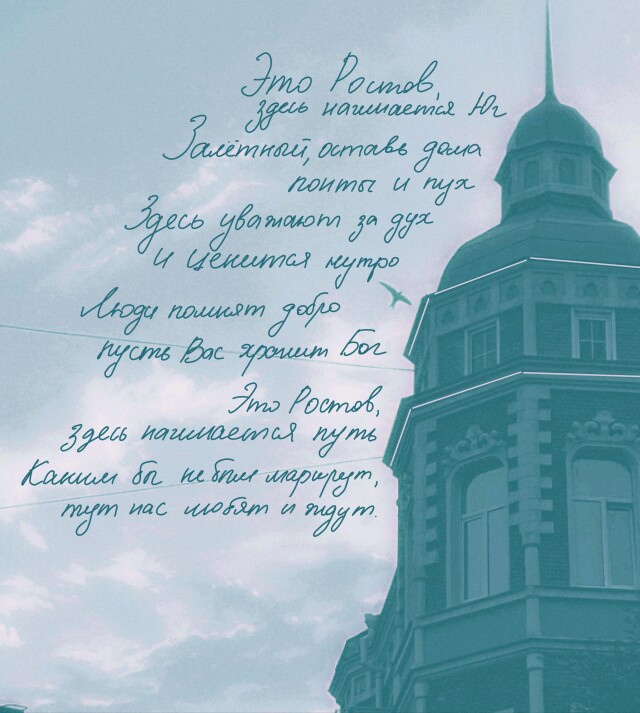 Это Ростов,
здесь начинается Юг
Залётный, оставь дома
понты и пух
Здесь уважают за дух
и ценится нутро
Люди помнят добро
пусть Вас хранит Бог
Это Ростов,
здесь начинается путь
Каким бы не был маршрут,
тут нас любят и ждут.